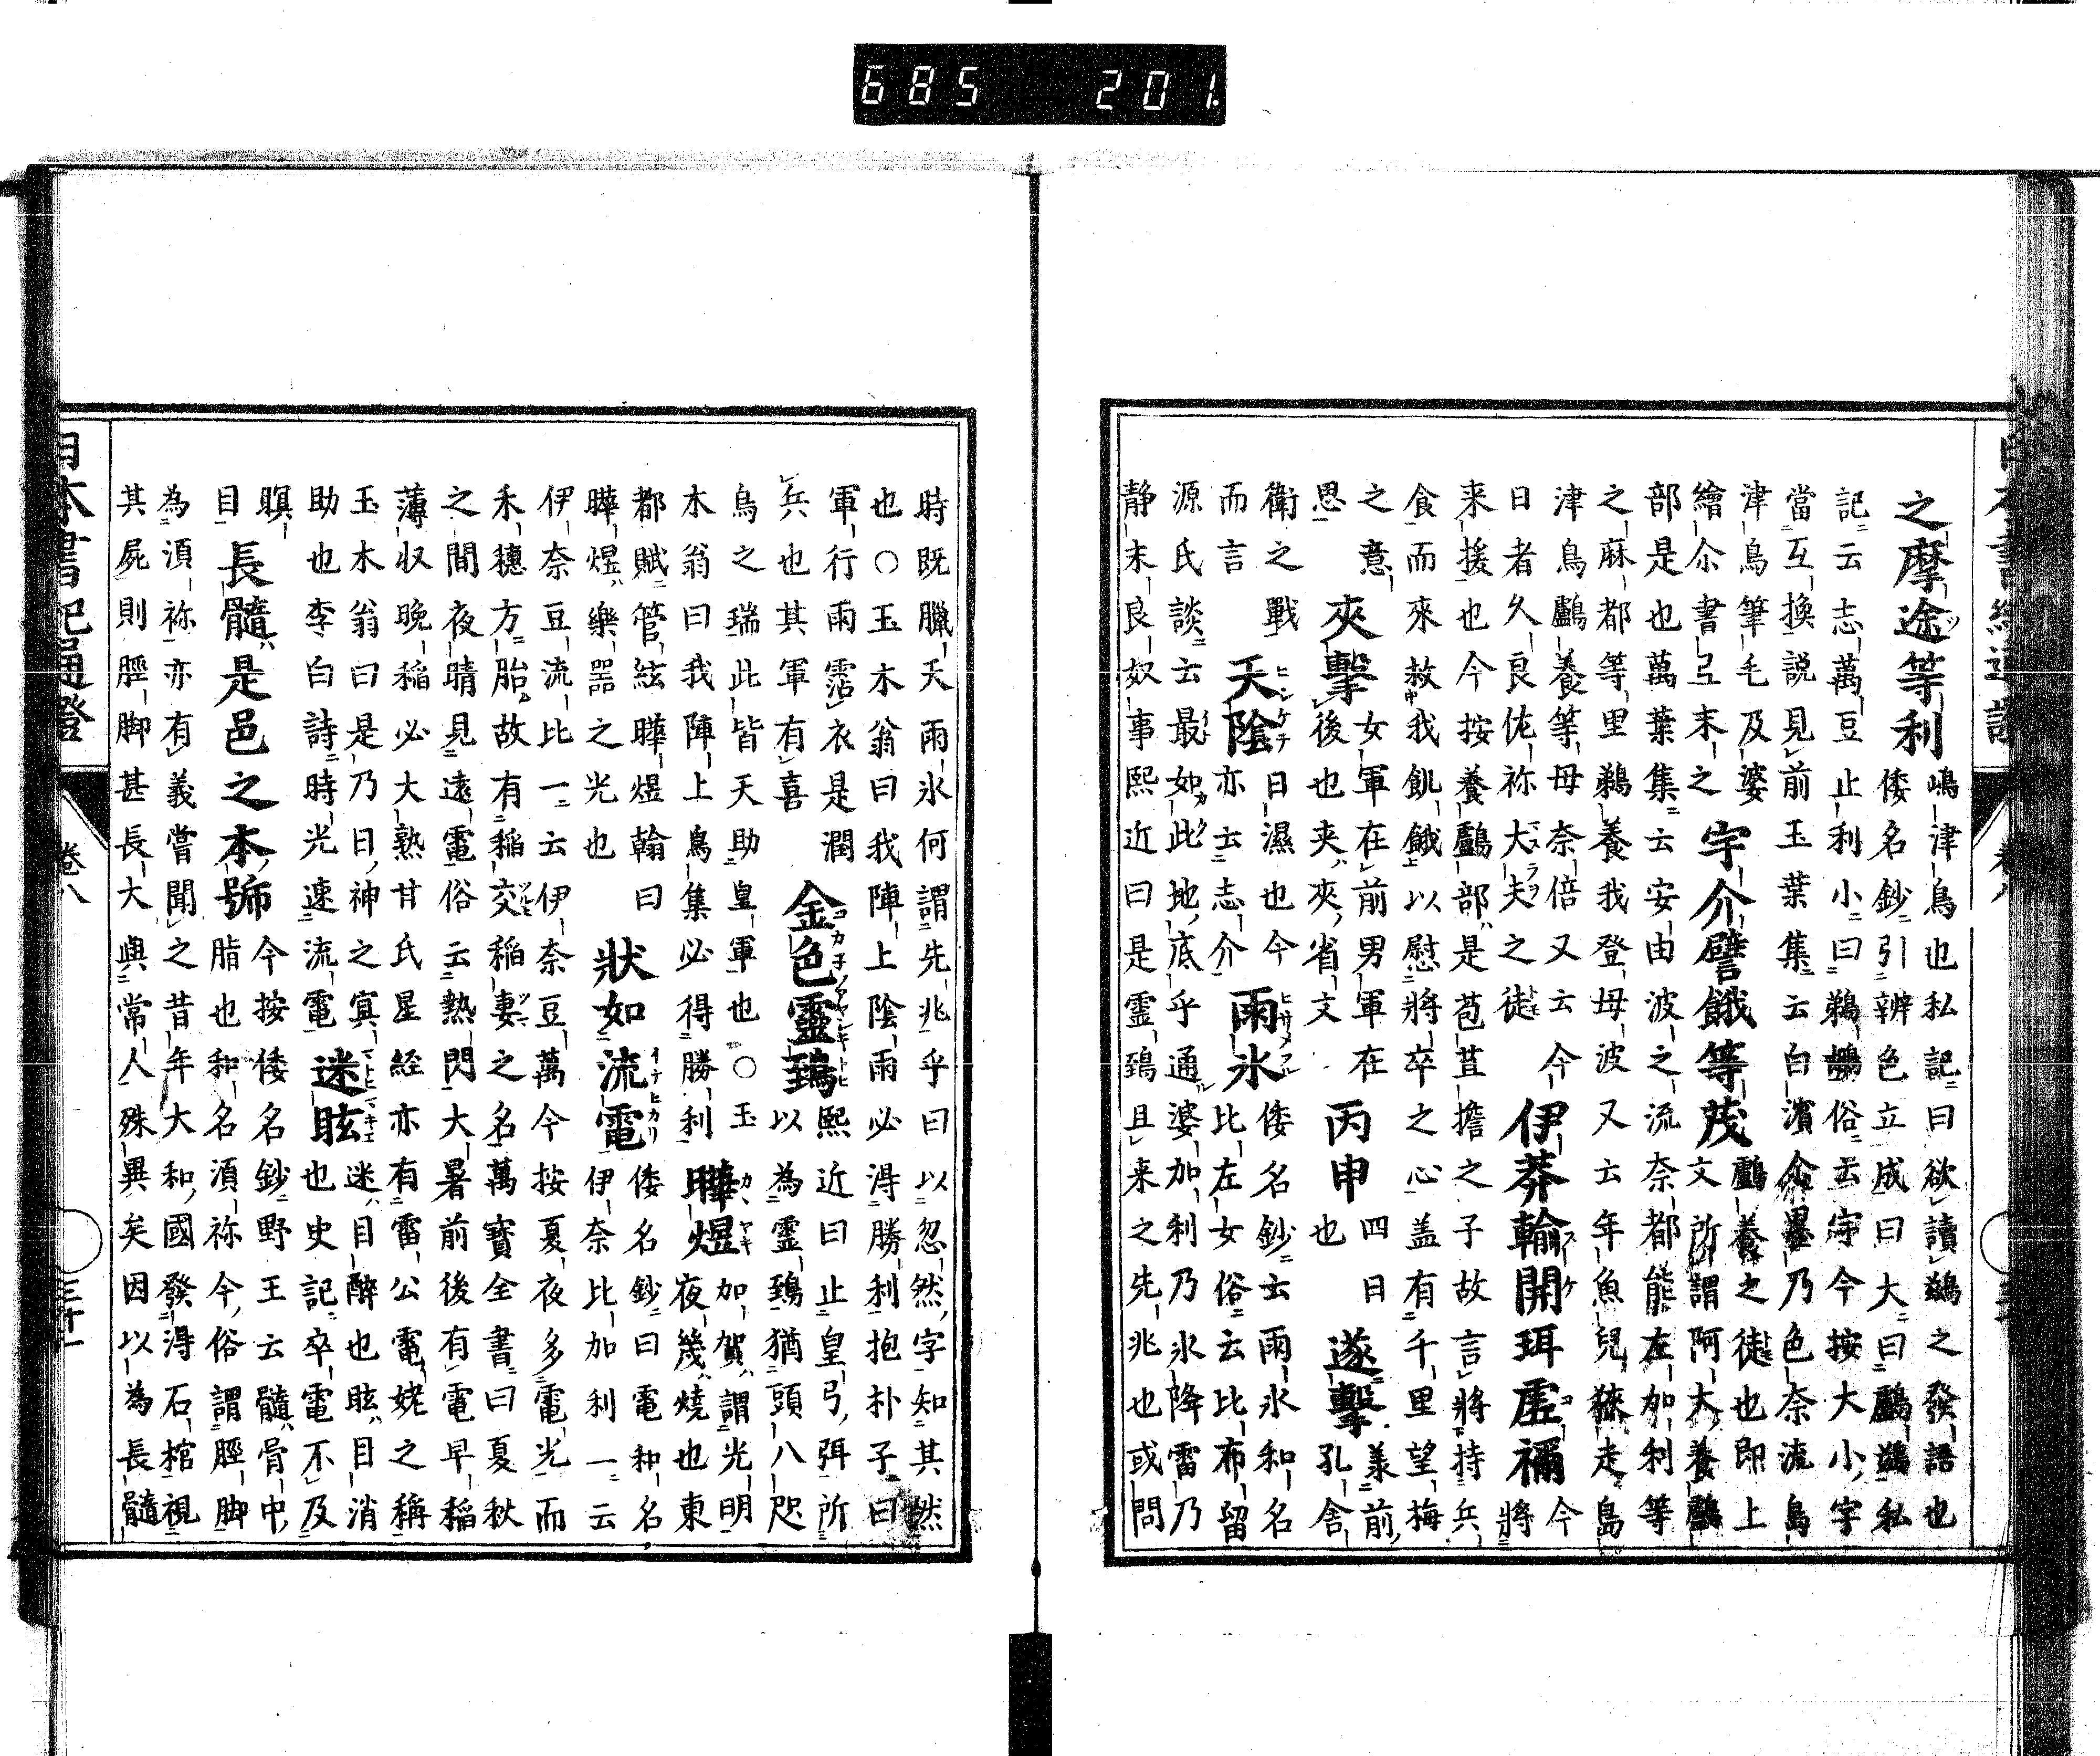 685 201
之摩途等利
嶋津鳥也私記曰欲讀鷀之發語也
倭名鈔引辨色立成曰大曰鸕鷀私
記云志萬豆止利小曰鵜鶘俗云宇今按大小字
當互換説見前玉葉集云白濱尒墨乃色奈流島
津鳥筆毛及婆
繪尒書弖末之
宇介譬餓等茂
鸕養之徒也即上
文所謂阿太養鸕
部是也萬葉集云安由波之流奈都能左加利等
之麻都等里鵜養我登母波又云年魚兒狹走島
津鳥鸕養等母奈倍又云今
日者久良佐祢大夫之徒
伊莽輸開珥虛禰
今
將
来援也今按養鸕部是苞苴擔之子故言將持兵
食而來救我飢餓以慰將卒之心盖有千里望梅
之意
思
夾擊
女軍在前男軍在
後也夾夾省文
丙申
四日
也
遂擊
羕前
孔舍
衛之戰
而言
天陰
日濕也今
亦云志介
雨氷
倭名鈔云雨氷和名
比左女俗云比布留
源氏談云最如此地底乎通婆加利乃氷降雷乃
静末良奴事熙近曰是靈鵄且来之先兆也或問
時既臘天雨氷何謂先兆乎曰以忽然字知其然
也○玉木翁曰我陣上陰雨必得勝利抱朴子曰
軍行雨霑衣是潤
兵也其軍有喜
金色靈鵄
熙近曰止皇弓弭所
以為靈鵄猶頭八咫
烏之瑞此皆天助皇軍也○玉
木翁曰我陣上烏集必得勝利
曄煜
加賀謂光明
夜幾燒也東
都賦管絃曄煜翰曰
曄煜樂器之光也
狀如流電
倭名鈔曰電和名
伊奈比加利一云
伊奈豆流比一云伊奈豆萬今按夏夜多電光而
禾穗方胎故有稲交稲妻之名萬寶全書曰夏秋
之間夜晴見遠電俗云熱閃大暑前後有電早稲
薄収晚稲必大熟甘氏星経亦有雷公電姥之稱
玉木翁曰是乃日神之寘
助也李白詩時光速流電
迷眩
迷目醉也眩目消
也史記卒電不及
瞑
目
長髓是邑之本號
今按倭名鈔野王云髓骨中
脂也和名須祢今俗謂脛脚
為須祢亦有義嘗聞之昔年大和國發得石棺視
其屍則脛脚甚長大與常人殊異矣因以為長髓
日本書紀通證
卷八
三十一